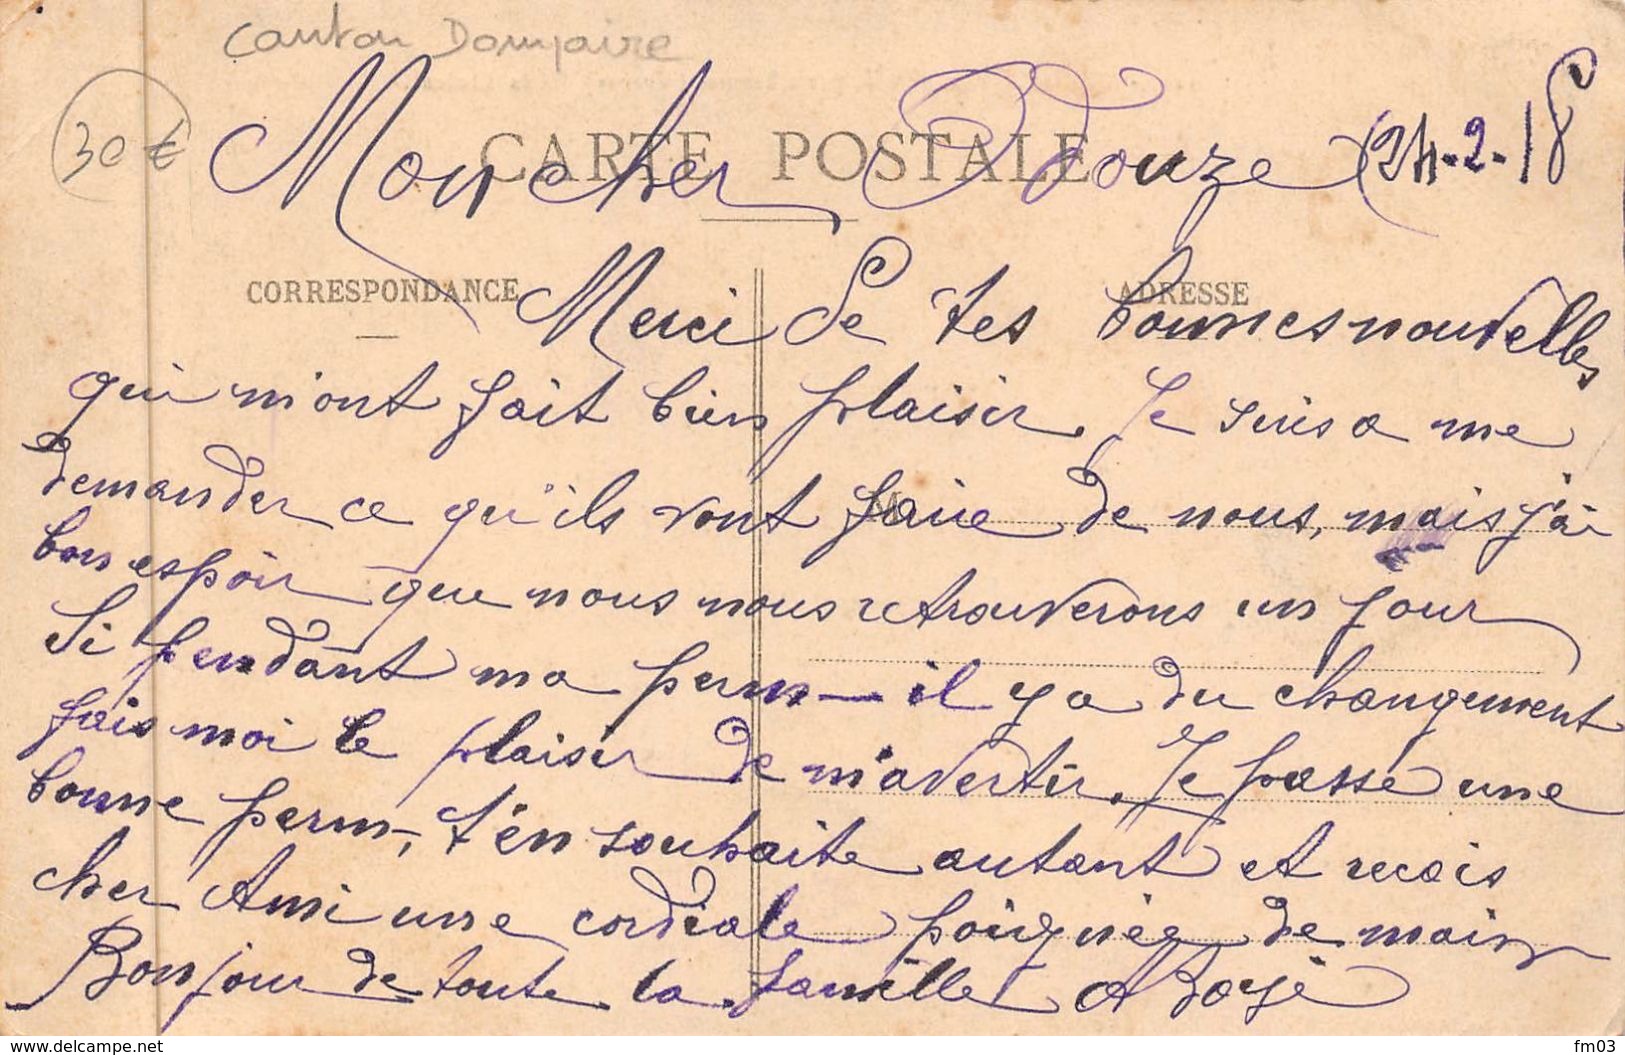 Canton Dompaire
30 €
CARTE POSTALE
Mon cher Douze 24-2-18
CORRESPONDANCE
ADRESSE
Merci de tes bonnes nouvelles
qui m'ont fait bien plaisir. Je suis a me
demander ce qu'ils vont faire de nous, mais j'ai
bon espoir que nous nous retrouverons un jour
Si pendant ma perm — il y a du changement
fais moi le plaisir de m'avertir. Je passe une
bonne perm, t'en souhaite autant et recois
cher Ami une cordiale poignée de main
Bonjour de toute la famille
www.delcampe.net
fm03